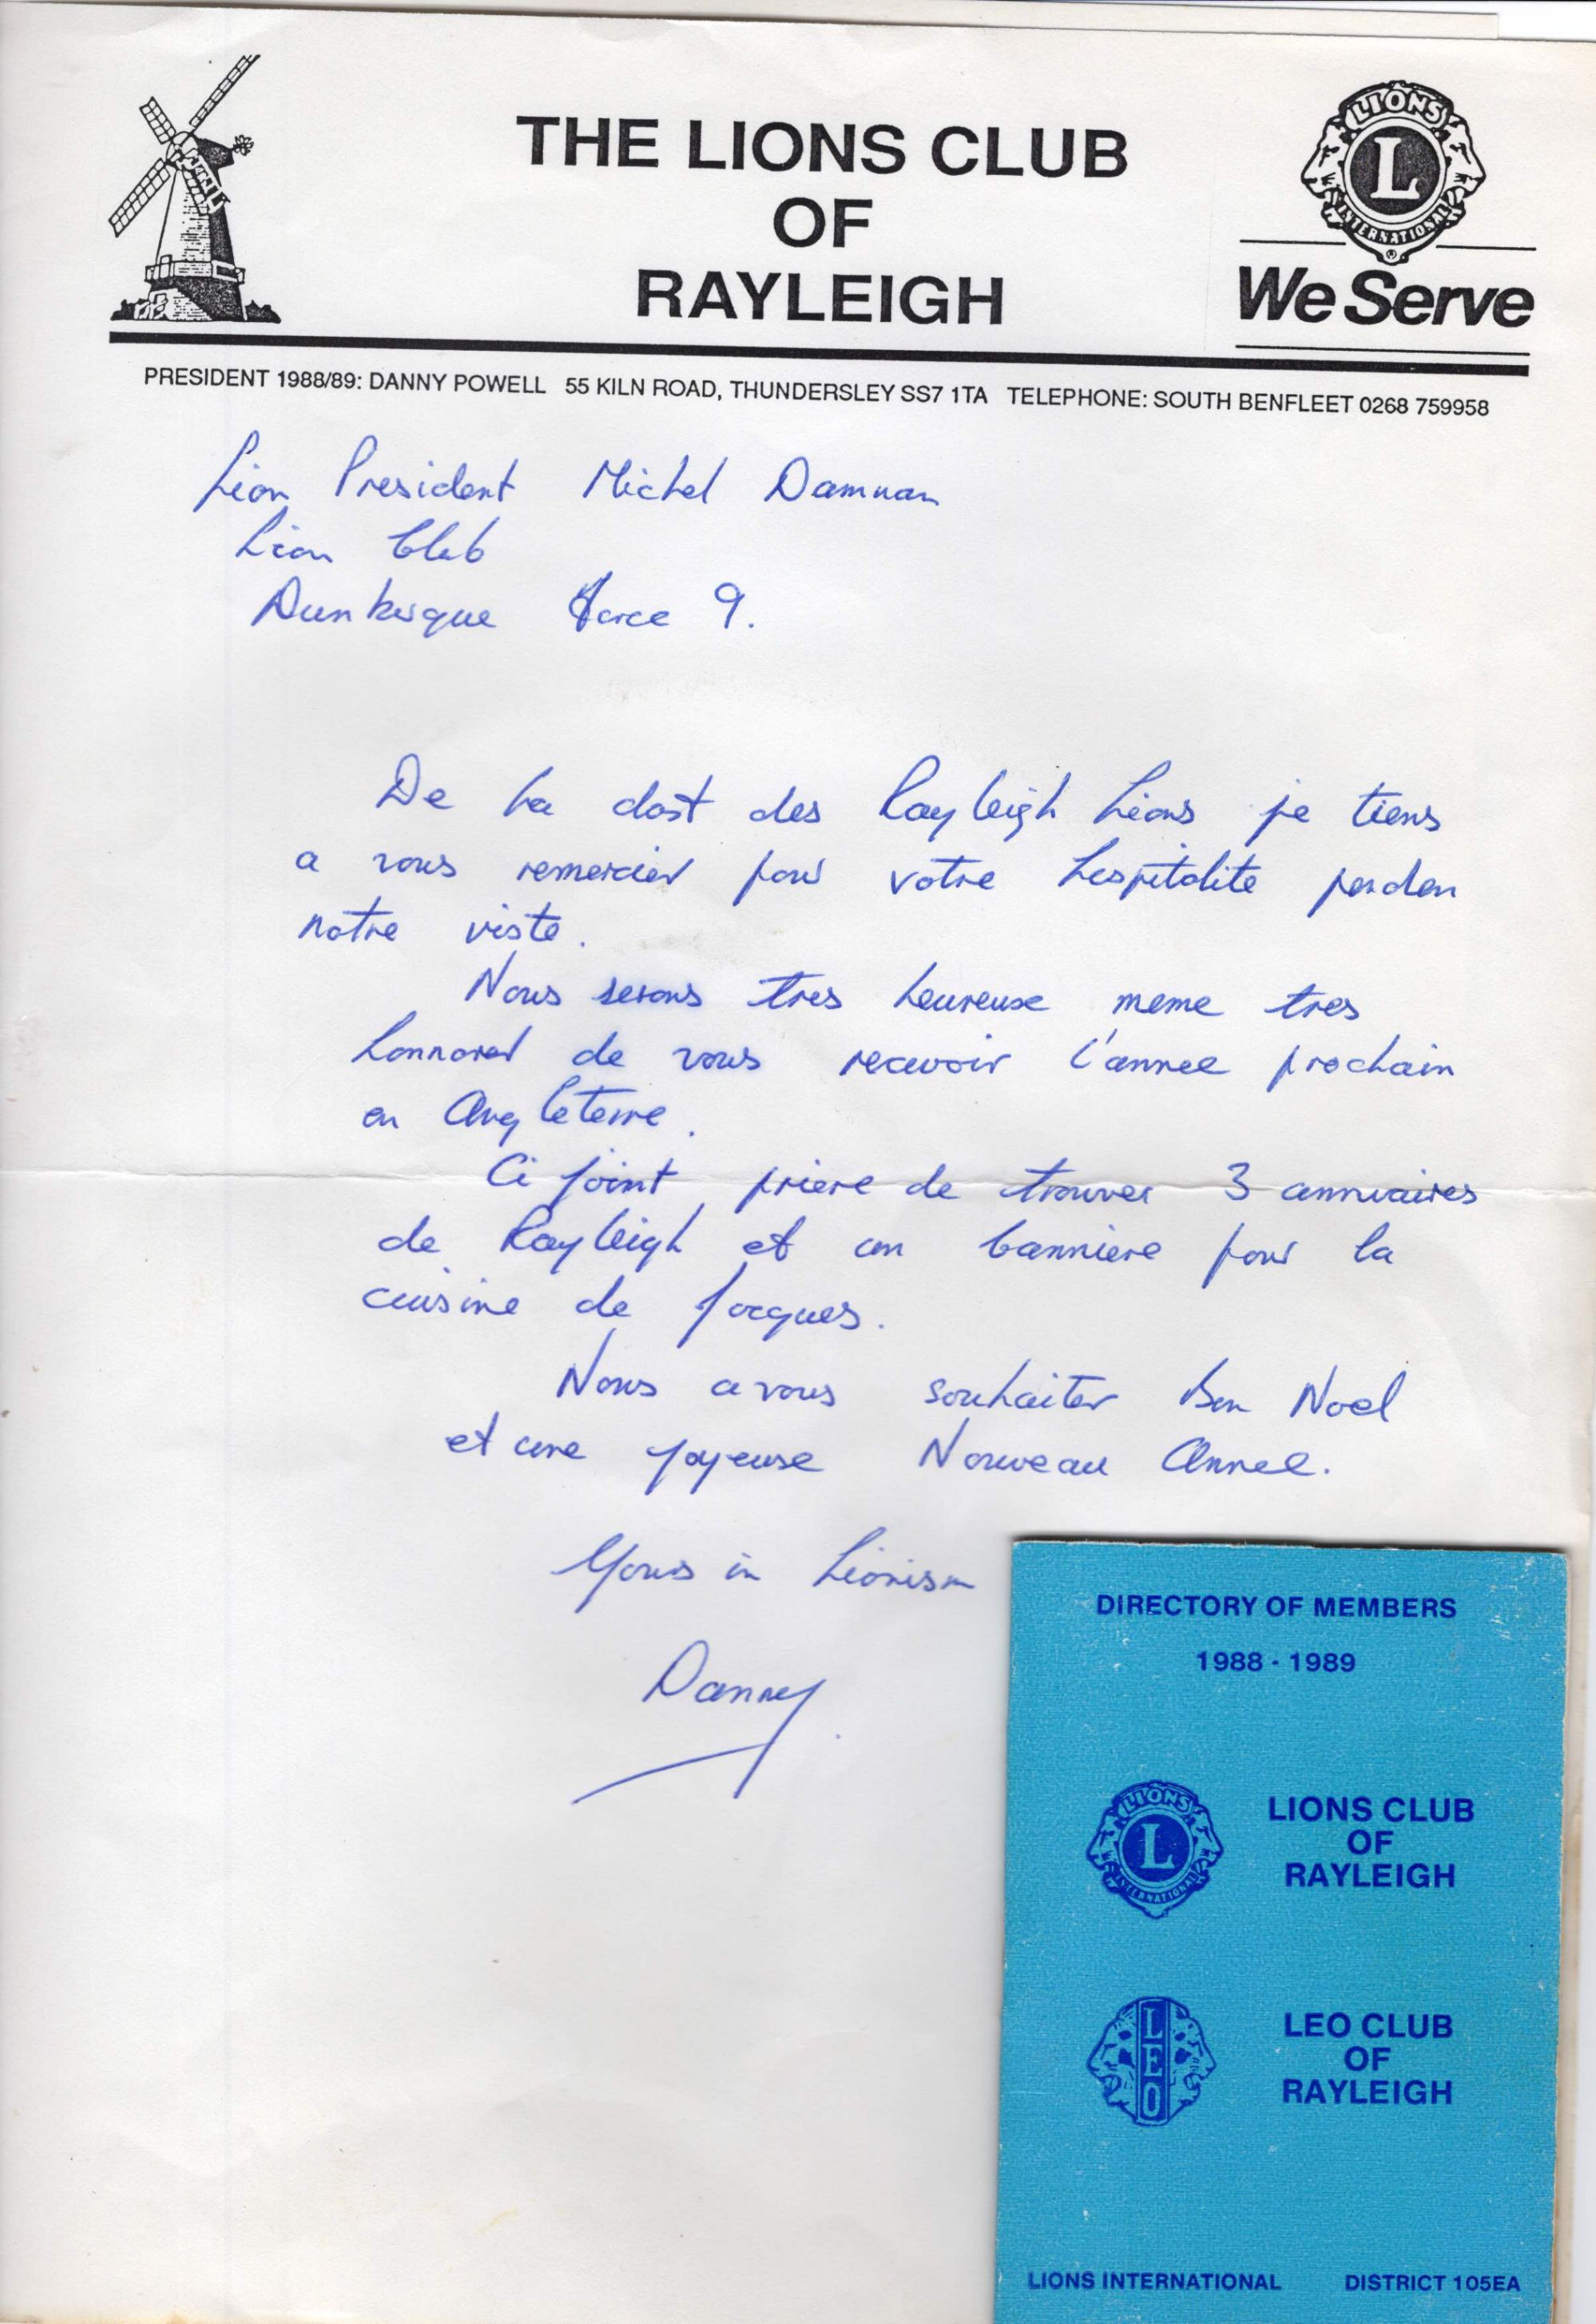 THE LIONS CLUB
OF
RAYLEIGH
LIONS
L
INTERNATIONAL
We Serve
PRESIDENT 1988/89: DANNY POWELL 55 KILN ROAD, THUNDERSLEY SS7 1TA TELEPHONE: SOUTH BENFLEET 0268 759958
Lion President Michel Damman
Lion Club
Dunkerque Force 9.
De la dost des Rayleigh Lions je tiens
a vous remercier pour votre hospitalite pendan
notre viste.
Nous serons tres heureuse meme tres
honnored de vous recevoir l'annee prochain
en Angleterre.
Ci joint priere de trouver 3 annuaires
de Rayleigh et un banniere pour la
cuisine de Jacques.
Nous a vous souhaiter Bon Noel
et une joyeuse Nouveau Annee.
Yours in Lionism
Danny
DIRECTORY OF MEMBERS
1988 - 1989
LIONS
L
INTERNATIONAL
LIONS CLUB
OF
RAYLEIGH
LEO
LEO CLUB
OF
RAYLEIGH
LIONS INTERNATIONAL DISTRICT 105EA